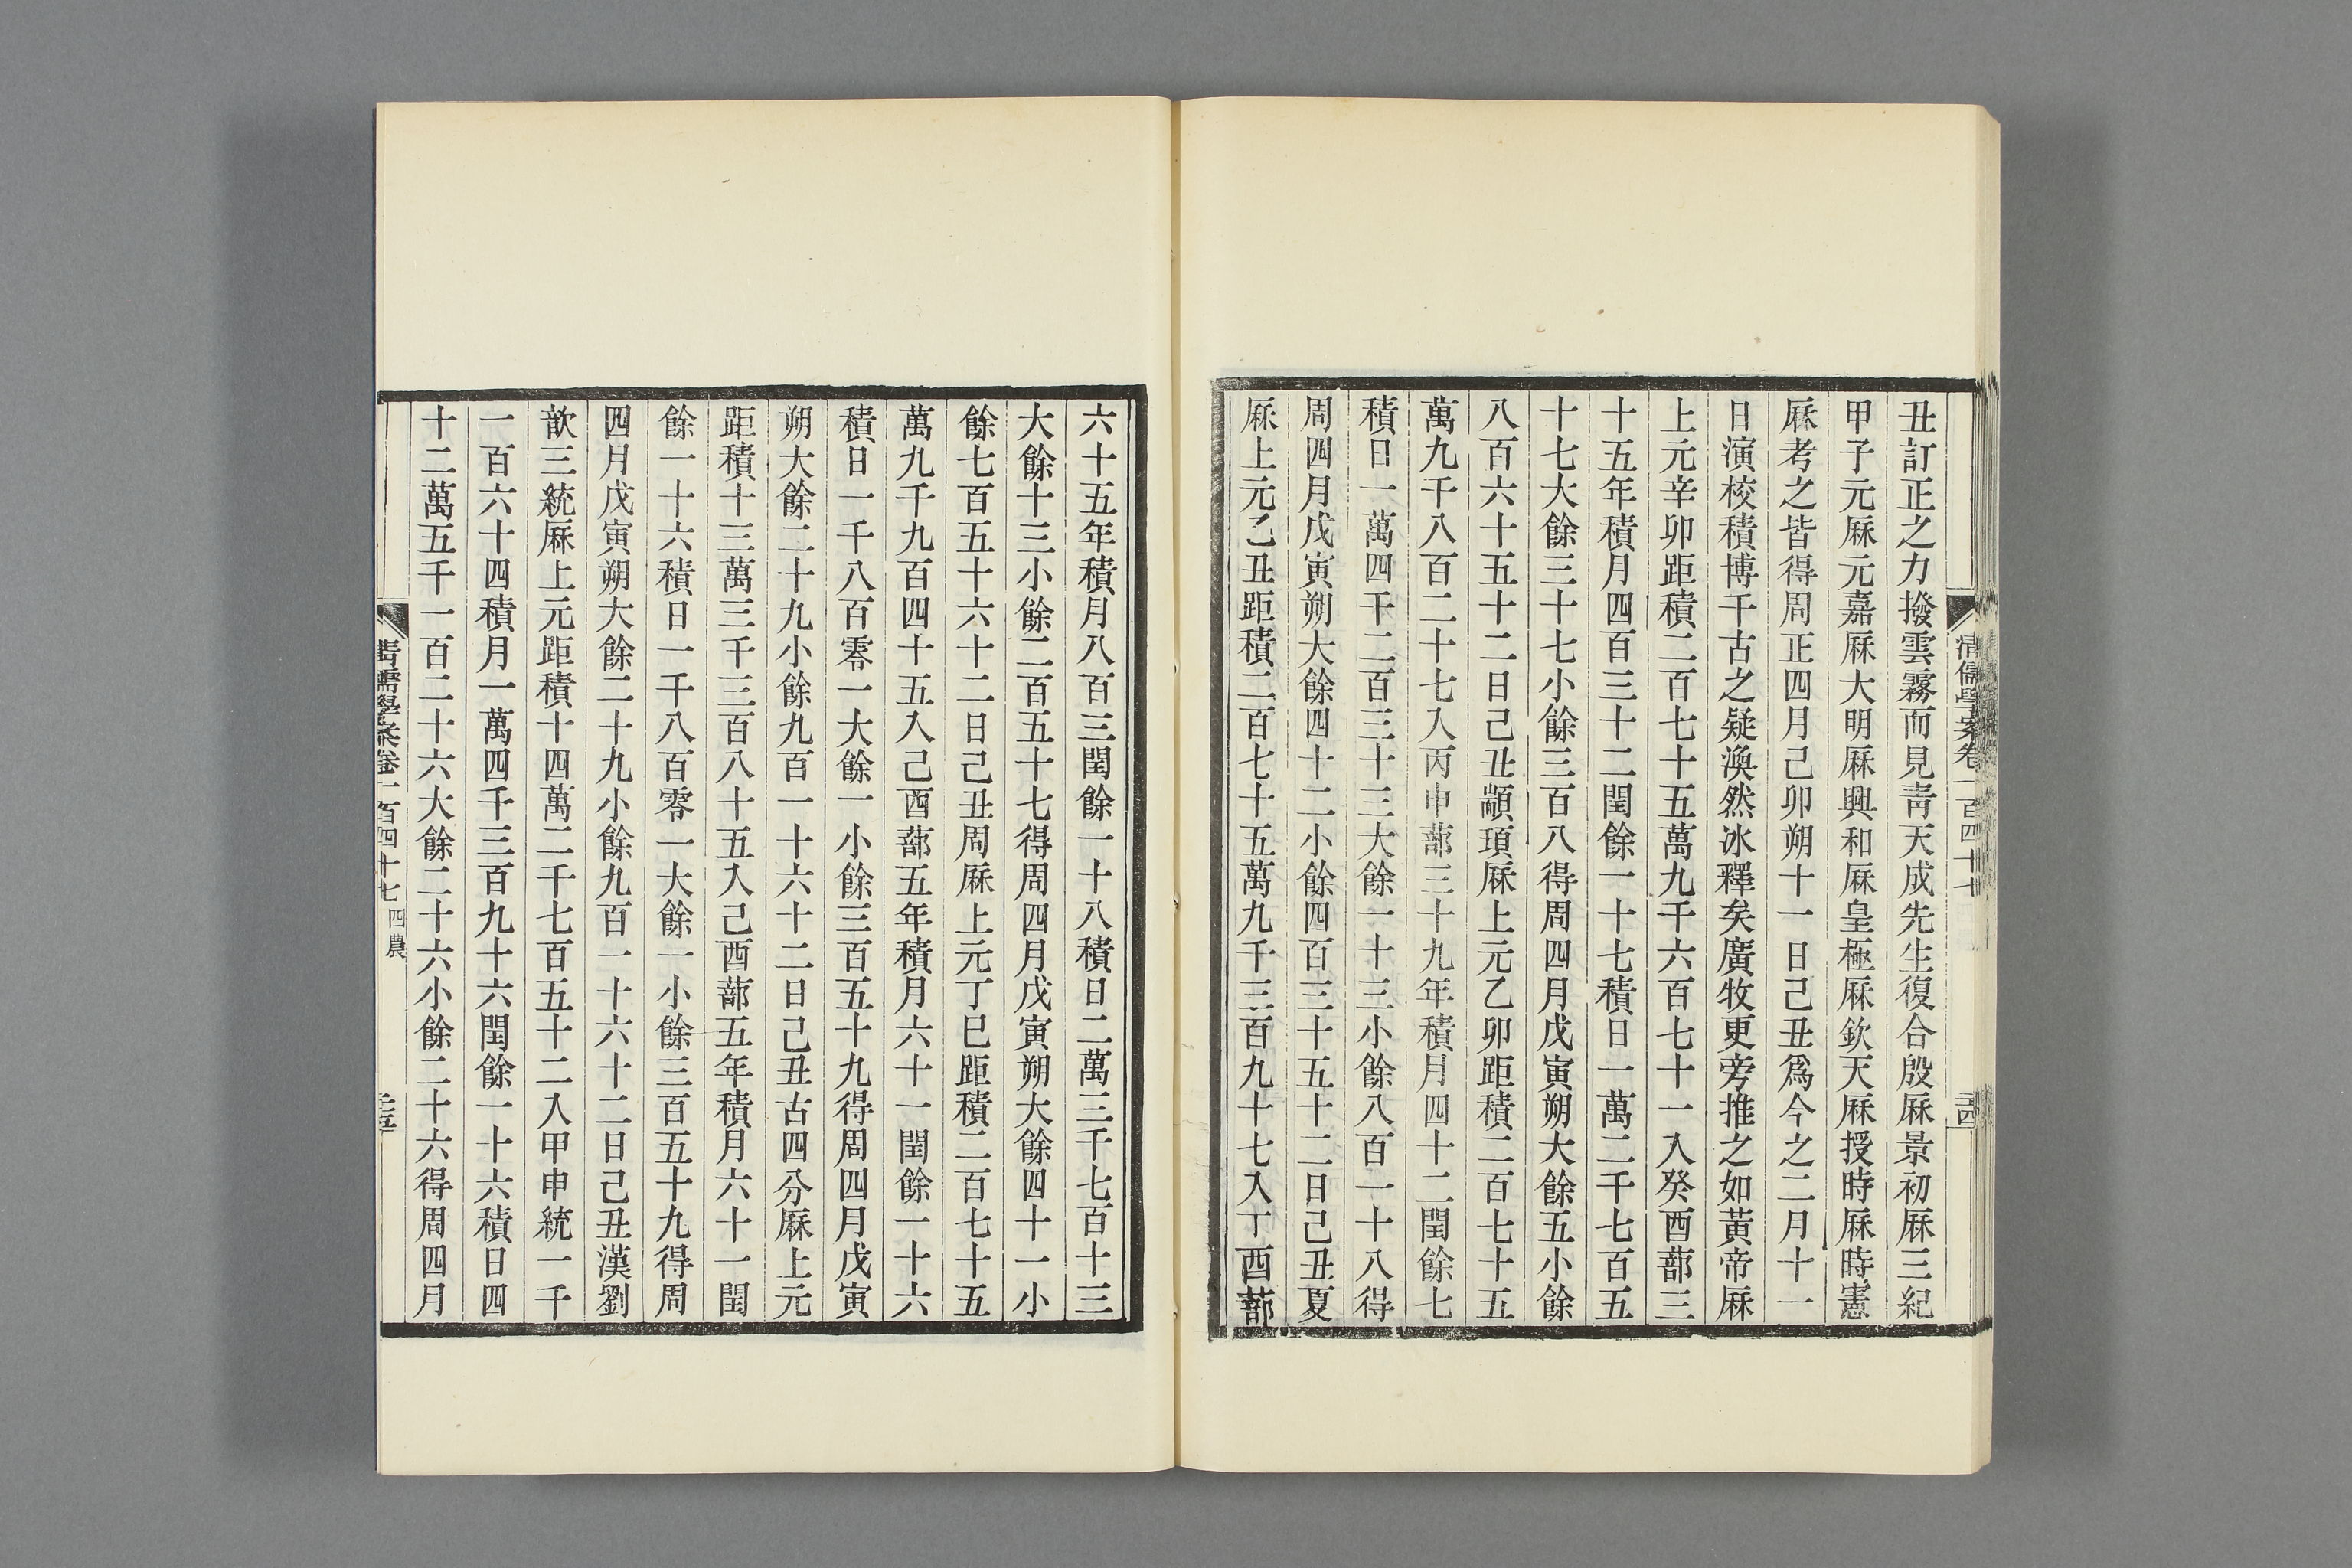 清儒學案卷一百四十七
丑訂正之力撥雲霧而見靑天成先生復合殷厤景初厤三紀
甲子元厤元嘉厤大明厤興和厤皇極厤欽天厤授時厤時憲
厤考之皆得周正四月己卯朔十一日己丑爲今之二月十一
日演校積博千古之疑渙然冰釋矣廣牧更旁推之如黃帝厤
上元辛卯距積二百七十五萬九千六百七十一入癸酉蔀三
十五年積月四百三十二閏餘一十七積日一萬二千七百五
十七大餘三十七小餘三百八得周四月戊寅朔大餘五小餘
八百六十五十二日己丑顓頊厤上元乙卯距積二百七十五
萬九千八百二十七入丙申蔀三十九年積月四十二閏餘七
積日一萬四千二百三十三大餘一十三小餘八百一十八得
周四月戊寅朔大餘四十二小餘四百三十五十二日己丑夏
厤上元乙丑距積二百七十五萬九千三百九十七入丁酉蔀
六十五年積月八百三閏餘一十八積日二萬三千七百十三
大餘十三小餘二百五十七得周四月戊寅朔大餘四十一小
餘七百五十六十二日己丑周厤上元丁巳距積二百七十五
萬九千九百四十五入己酉蔀五年積月六十一閏餘一十六
積日一千八百零一大餘一小餘三百五十九得周四月戊寅
朔大餘二十九小餘九百一十六十二日己丑古四分厤上元
距積十三萬三千三百八十五入己酉蔀五年積月六十一閏
餘一十六積日一千八百零一大餘一小餘三百五十九得周
四月戊寅朔大餘二十九小餘九百一十六十二日己丑漢劉
歆三統厤上元距積十四萬二千七百五十二入甲申統一千
一百六十四積月一萬四千三百九十六閏餘一十六積日四
十二萬五千一百二十六大餘二十六小餘二十六得周四月
清儒學案卷一百四十七 四農